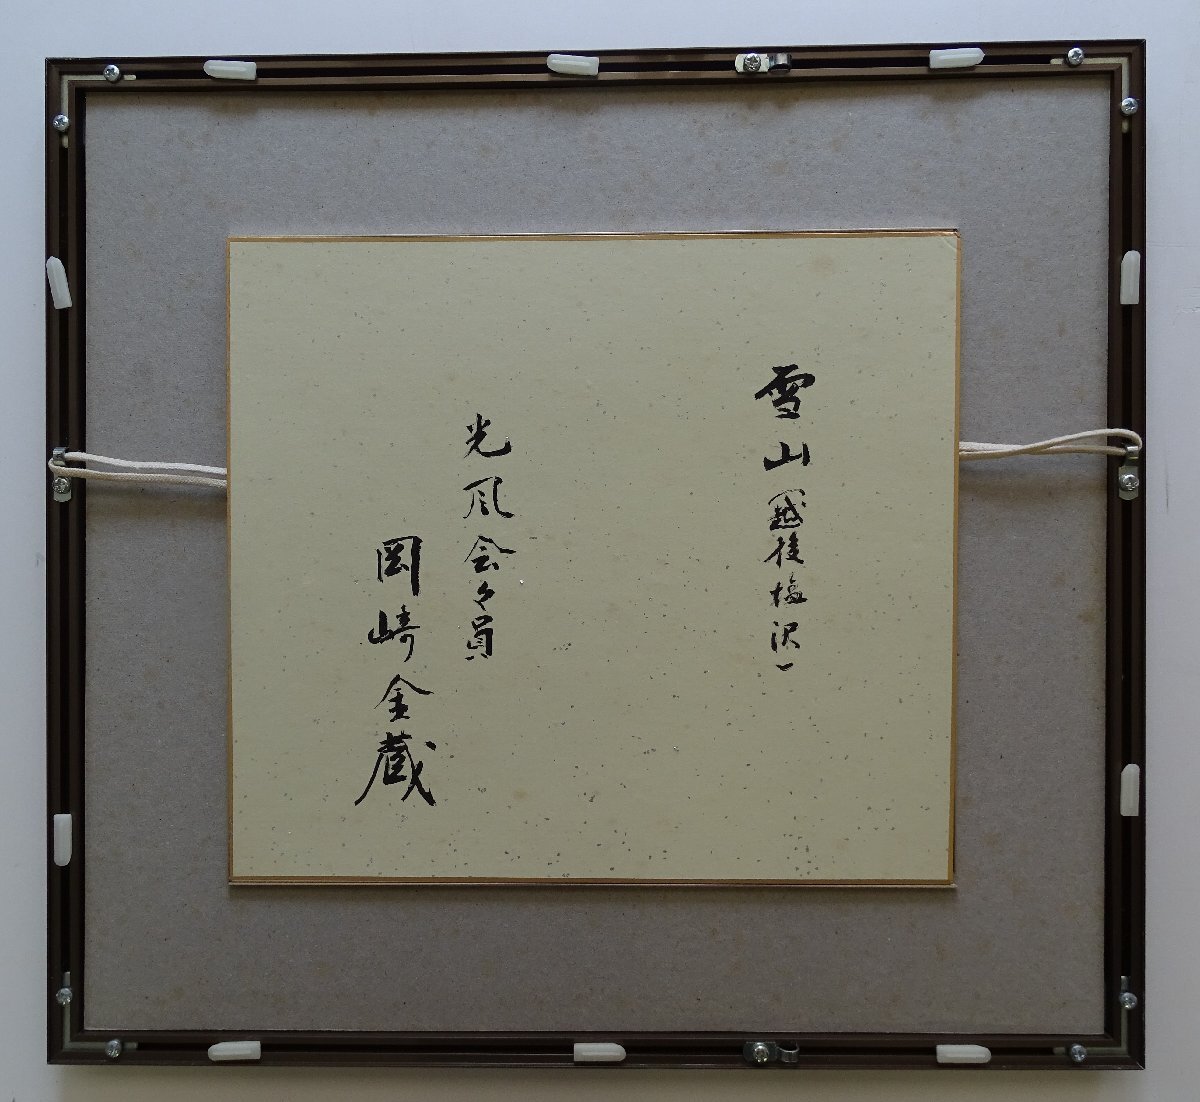 雪山(越後梅沢)
光風会々員
岡崎金蔵